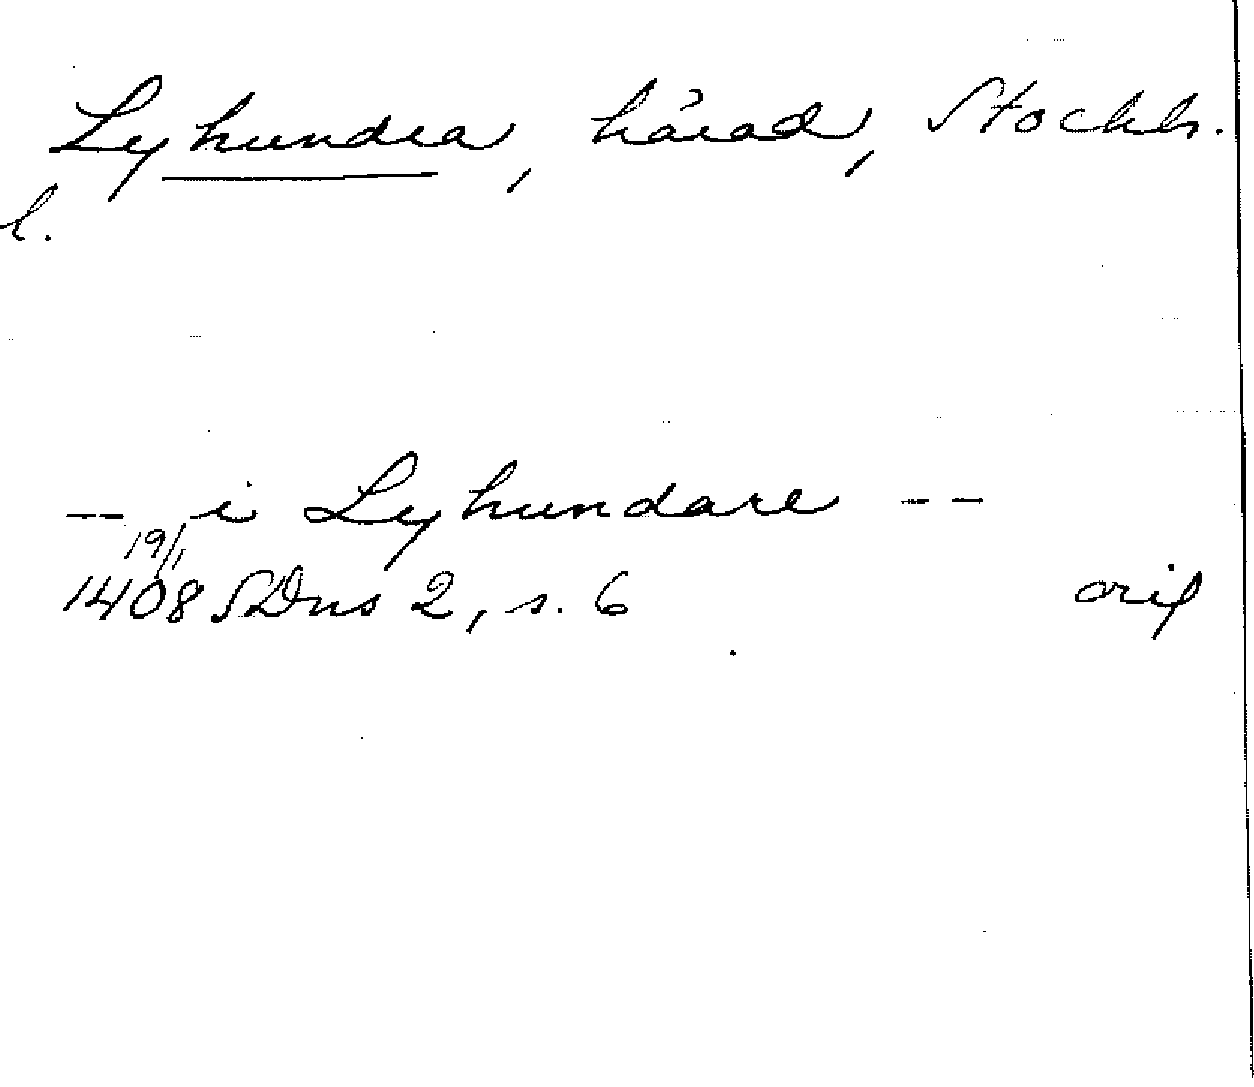 Lyhundra, härad, Stockh.
l.
-- i Lyhundare --
19/1
1408 SDns 2, s. 6 orig